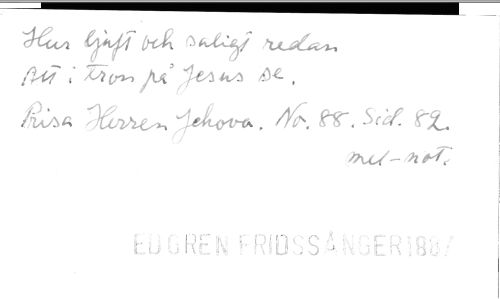 Hur ljuft och saligt redan
Att i tron på Jesus se.
Prisa Herren Jehova. No. 88. Sid. 82.
mel-not.
EDGREN FRIDSSÅNGER